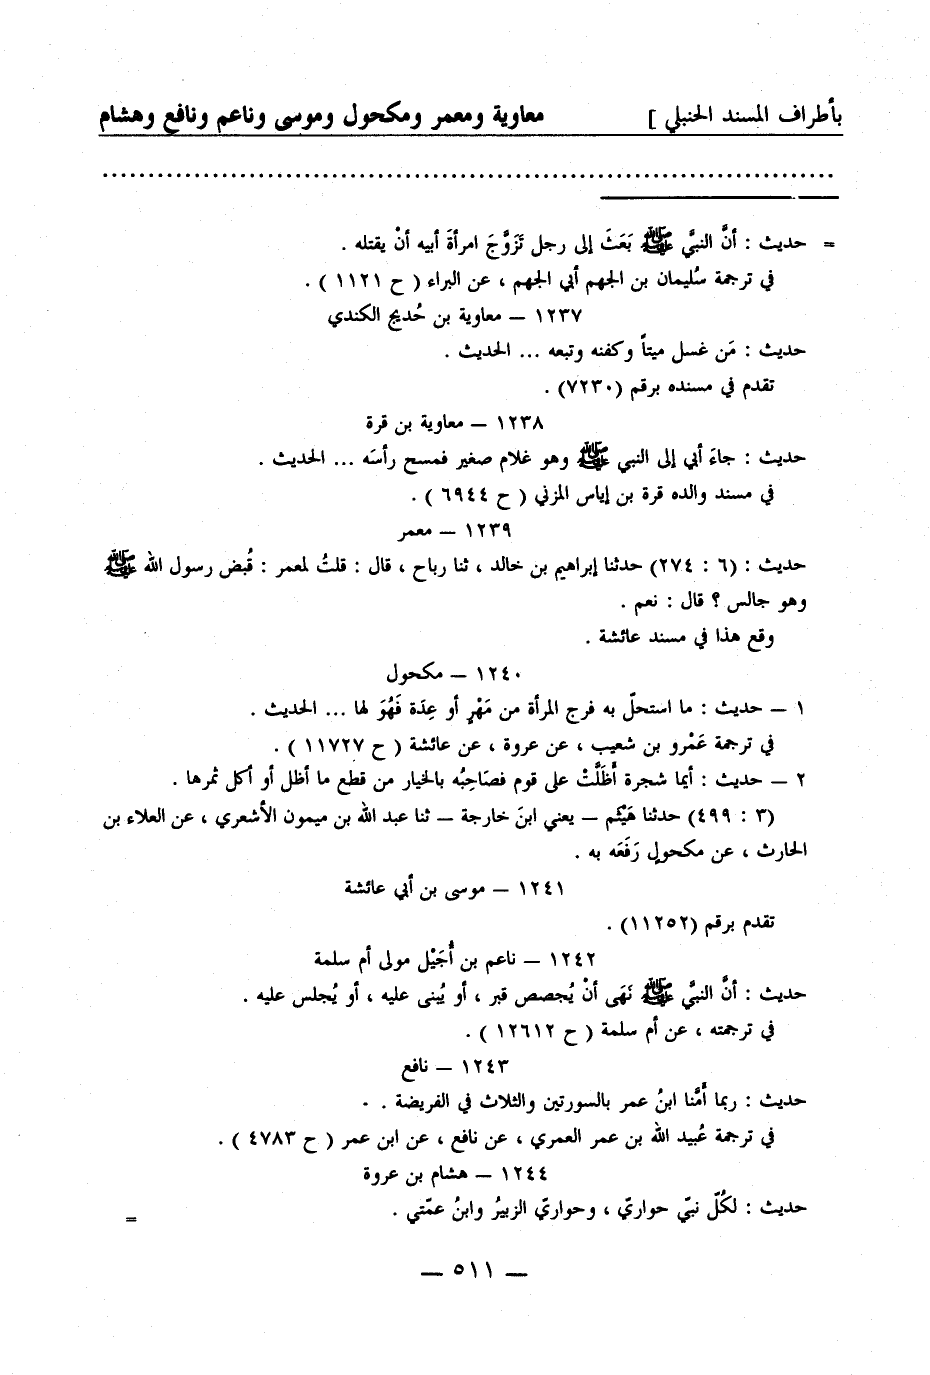 بأطراف المسند الحنبلي ] معاوية ومعمر ومكحول وموسى وناعم ونافع وهشام
................................................................................
= حديث : أنَّ النبيَّ ﷺ بَعَثَ إلى رجل تَزَوَّجَ امرأةَ أبيه أنْ يقتله .
في ترجمة سُليمان بن الجهم أبي الجهم ، عن البراء ( ح ١١٢١ ) .
١٢٣٧ – معاوية بن حُديج الكندي
حديث : مَن غسل ميتاً وكفنه وتبعه ... الحديث .
تقدم في مسنده برقم (٧٢٣٠) .
١٢٣٨ – معاوية بن قرة
حديث : جاءَ أبي إلى النبي ﷺ وهو غلام صغير فمسح رأسَه ... الحديث .
في مسند والده قرة بن إياس المزني ( ح ٦٩٤٤ ) .
١٢٣٩ – معمر
حديث : (٦ : ٢٧٤) حدثنا إبراهيم بن خالد ، ثنا رباح ، قال : قلتُ لمعمر : قُبض رسول الله ﷺ
وهو جالس ؟ قال : نعم .
وقع هذا في مسند عائشة .
١٢٤٠ – مكحول
١ – حديث : ما استحلّ به فرج المرأة من مَهْرٍ أو عِدَة فَهُوَ لها ... الحديث .
في ترجمة عَمْرو بن شعيب ، عن عروة ، عن عائشة ( ح ١١٧٢٧ ) .
٢ – حديث : أيما شجرة أَظَلَّتْ على قوم فصَاحِبُه بالخيار من قطع ما أظل أو أكل ثمرها .
(٣ : ٤٩٩) حدثنا هَيْثم – يعني ابنَ خارجة – ثنا عبد الله بن ميمون الأشعري ، عن العلاء بن
الحارث ، عن مكحولٍ رَفَعَه به .
١٢٤١ – موسى بن أبي عائشة
تقدم برقم (١١٢٥٢) .
١٢٤٢ – ناعم بن أُجَيْل مولى أم سلمة
حديث : أنَّ النبيَّ ﷺ نَهَى أنْ يُجصص قبر ، أو يُبنى عليه ، أو يُجلس عليه .
في ترجمته ، عن أم سلمة ( ح ١٢٦١٢ ) .
١٢٤٣ – نافع
حديث : ربما أَمَّنا ابنُ عمر بالسورتين والثلاث في الفريضة .
في ترجمة عُبيد الله بن عمر العمري ، عن نافع ، عن ابن عمر ( ح ٤٧٨٣ ) .
١٢٤٤ – هشام بن عروة
حديث : لكُلّ نبيّ حواريّ ، وحواريّ الزبيرُ وابنُ عمّتي .
=
– ٥١١ –